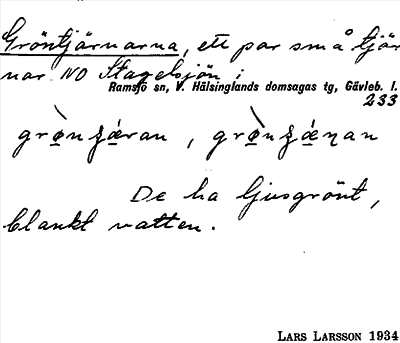 Gröntjärnarna, ett par små tjär
nar NO Stagelsjön i
Ramsjö sn, V. Hälsinglands domsagas tg, Gävleb. l.
233
De ha ljusgrönt,
blankt vatten.
LARS LARSSON 1934